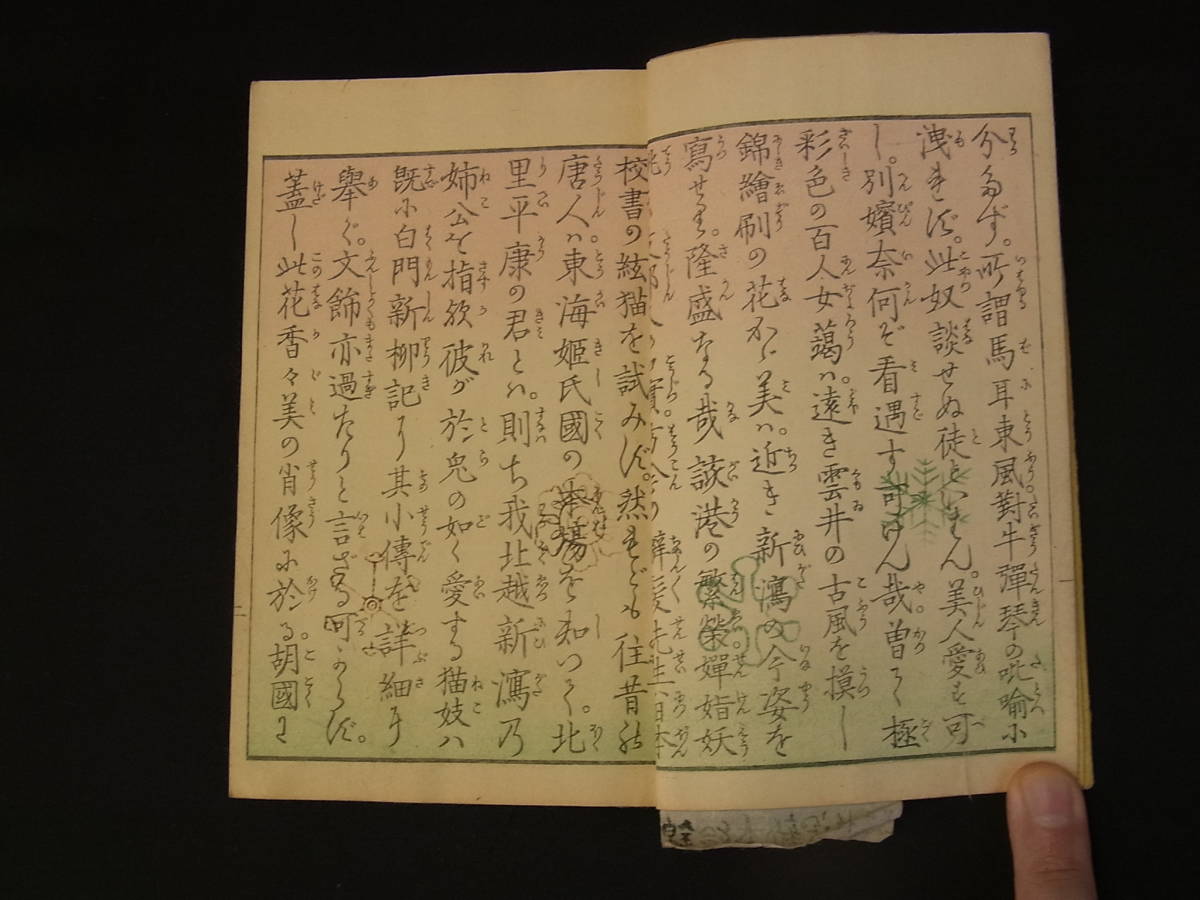 分たず。所謂馬耳東風對牛彈琴の吡喩に
洩れず。此奴談せぬ徒といはん。美人愛す可
し。別嬪奈何ぞ看過す可けん哉。曽て極
彩色の百人女﨟ハ。遠き雲井の古風を摸し
錦繪刷の花かゝ美ハ。近き新瀉の今姿を
寫せる。隆盛なる哉該港の繁榮嬋妍妖
校書の絃猫を試みず。然れども往昔の
唐人ハ東海姫氏國の本場を知つて。北
里平康の君とハ。則ち我北越新瀉乃
姉公を指欤彼が於兎の如く愛する猫妓ハ
既に白門新柳記より其小傳を詳細に
舉ぐ。文飾亦過たりと言ざる可からず。
蓋し此花香々美の肖像に於る。胡國に